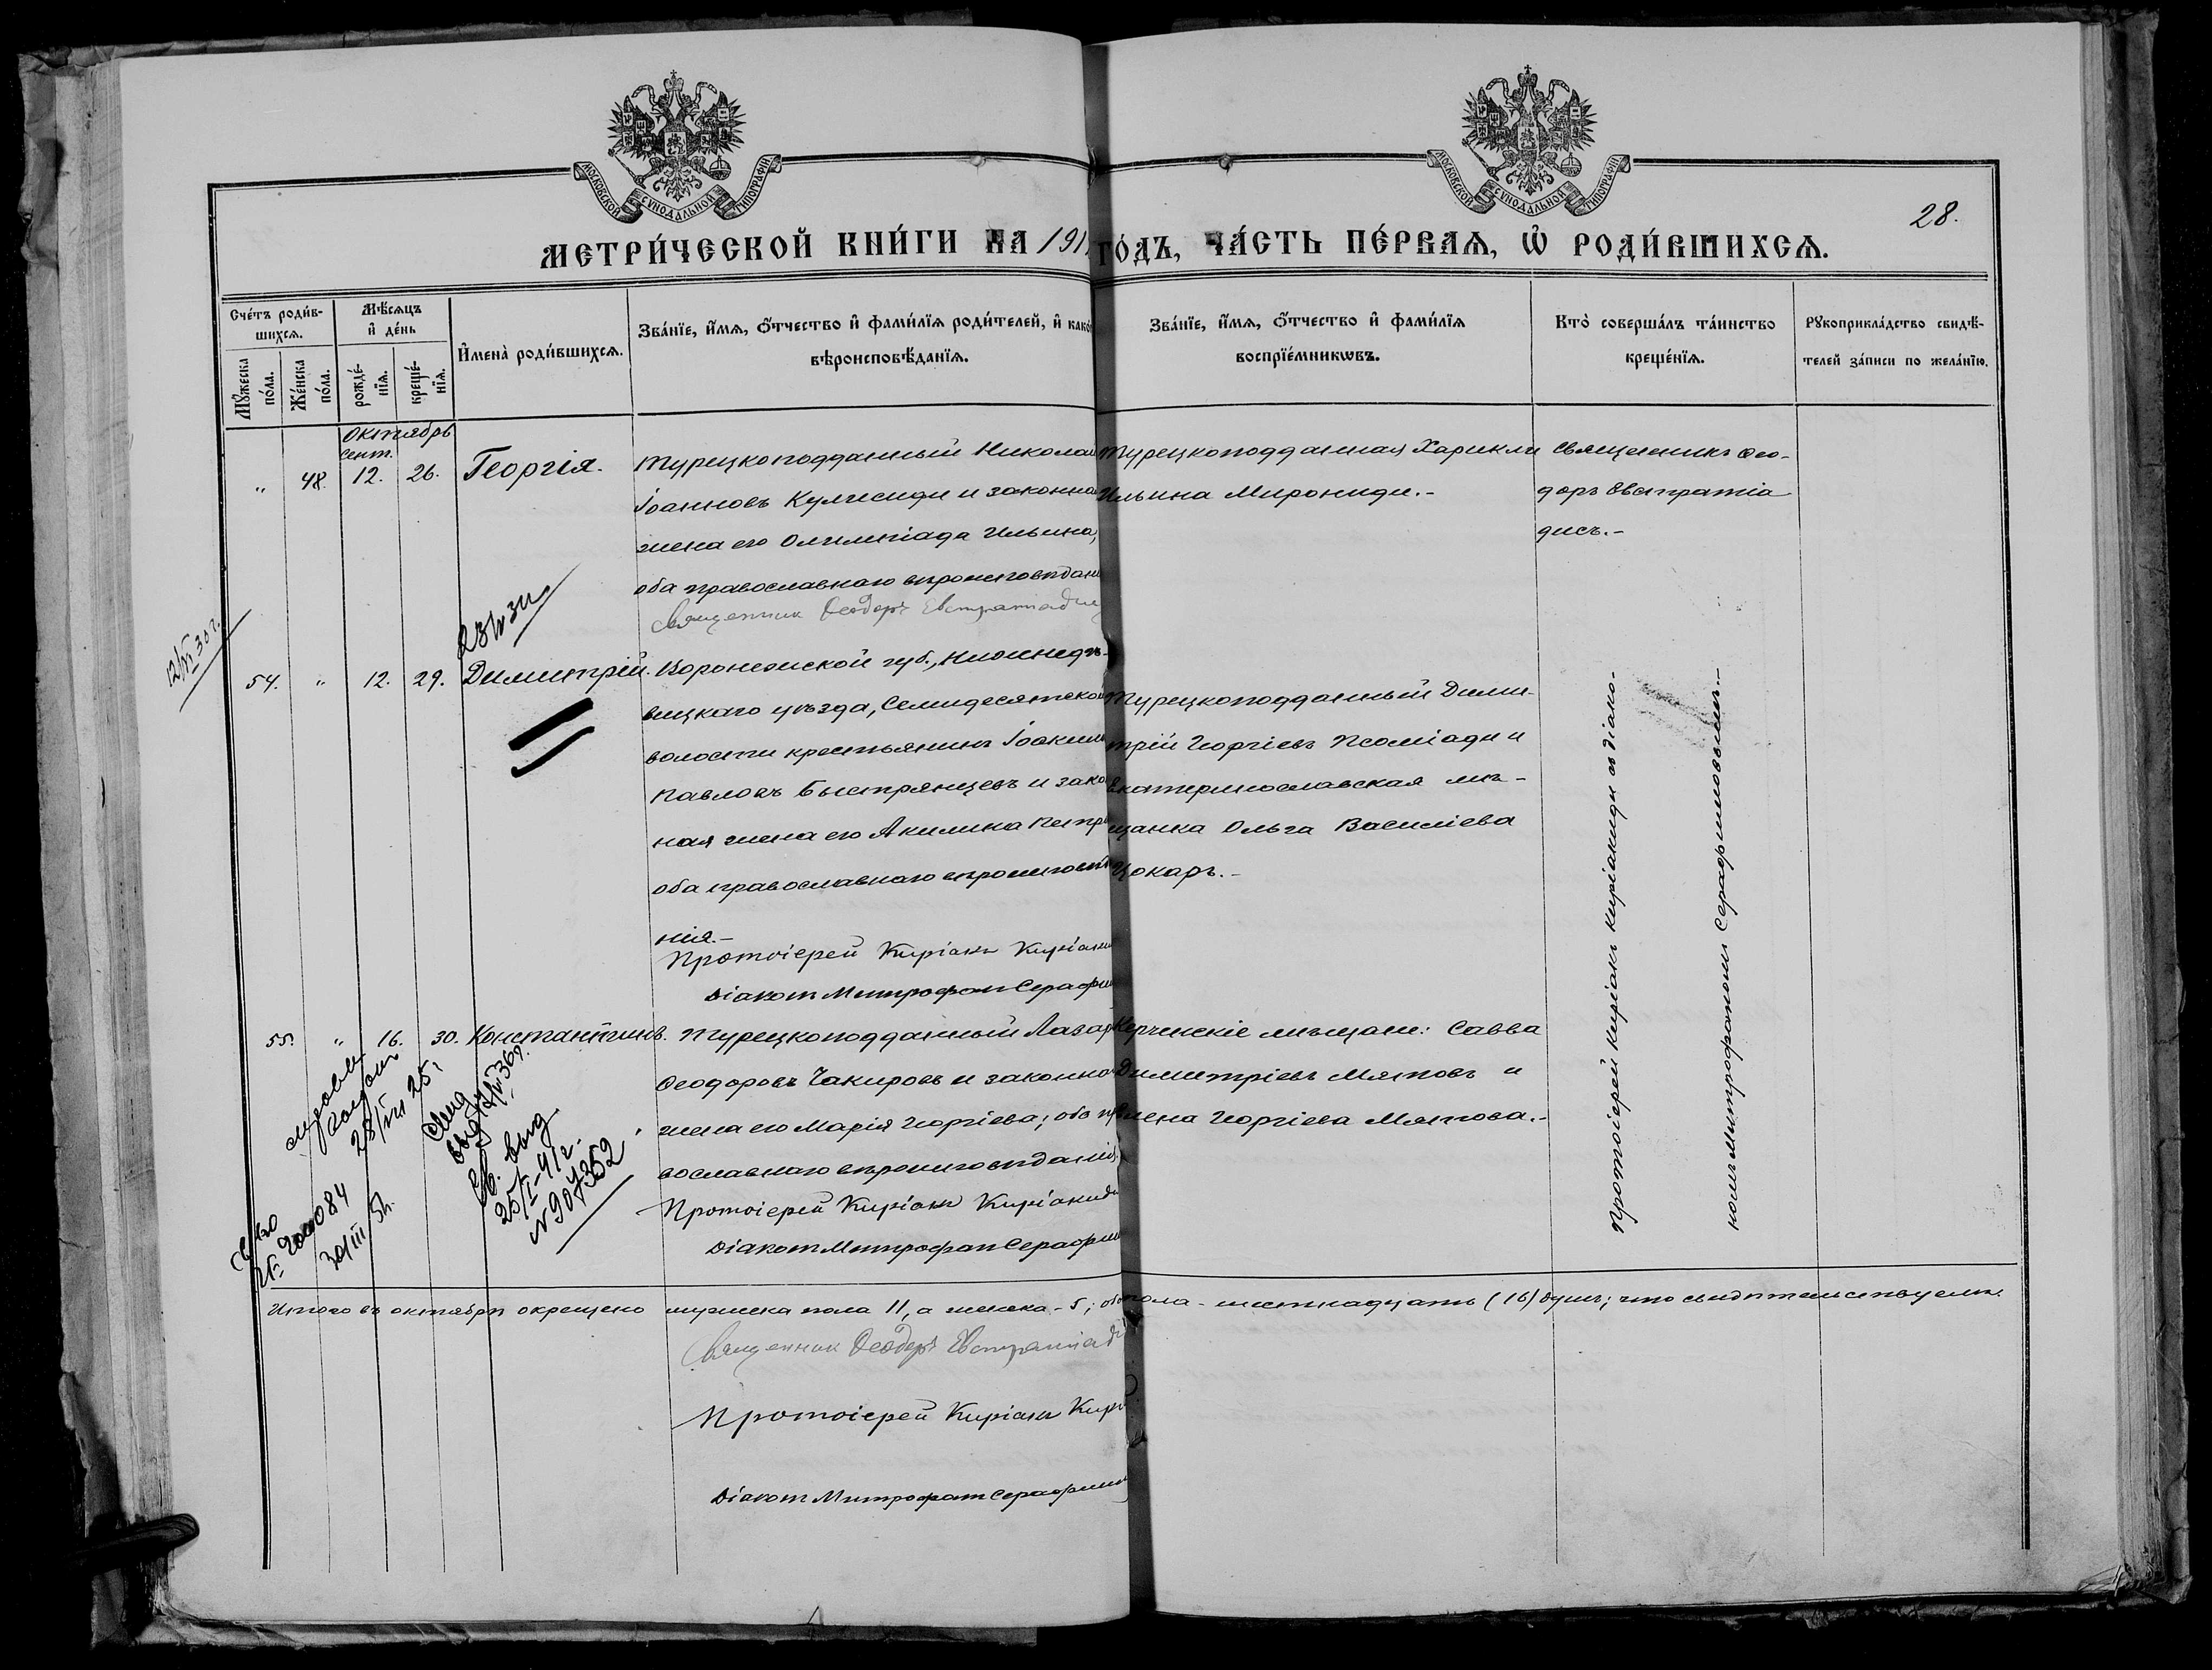 МОСКОВСКОЙ СѴНОДАЛЬНОЙ ТИПОГРАФІИ
МОСКОВСКОЙ СѴНОДАЛЬНОЙ ТИПОГРАФІИ
28.
МЕТРИ́ЧЕСКОЙ КНИ́ГИ НА 191
ГО́ДЪ, ЧА́СТЬ ПЕ́РВАѦ, Ѡ҆ РОДИ́ВШИХСѦ.
Сче́тъ роди́в-
шихсѧ.
Мꙋ́жеска по́ла.
Же́нска по́ла.
Мѣ́сѧцъ
и҆ де́нь
рожде́-нїѧ.
креще́-нїѧ.
И҆мена̀ роди́вшихсѧ.
Зва́нїе, и҆́мѧ, ѻ҆́тчество и҆ фами́лїѧ роди́телей, и҆ како́
вѣроисповѣ́данїѧ.
Зва́нїе, и҆́мѧ, ѻ҆́тчество и҆ фами́лїѧ
воспрїе́мникѡвъ.
Кто̀ соверша́лъ та́инство
креще́нїѧ.
Рꙋкоприкла́дство свидѣ́-
телей за́писи по жела́нїю.
Октябрь
Сент.
" 48. 12. 26. Георгія.
Турецкоподданный Николай
Іоанновъ Кулчисиди и законна
жена его Олимпіада Ильина,
оба православнаго вѣроисповѣдані
Священник Ѳеодоръ Евстратіадис
Турецкоподданная Харикли
Ильина Мирониди.-
Священникъ Ѳео-
доръ Евстратіа
дисъ.-
12/VI 30 г.
54. " 12. 29. Димитрій.
Воронежской губ., Нижнедѣ-
вицкаго уѣзда, Семидесятской
волости крестьянинъ Іоаким
Павловъ Быстрянцевъ и зако
ная жена его Акилина Петро
оба православнаго вѣроисповѣ
нія.-
Протоіерей Киріакъ Киріаки
Діакон Митрофан Серафи
Турецкоподданный Дими-
трій Георгіевъ Псоміади и
Екатеринославская мѣ-
щанка Ольга Василіева
Цокаръ.-
Протоіерей Киріакъ Киріакиди съ діако-
номъ Митрофаномъ Серафимовымъ.-
55. " 16. 30. Константинъ.
Турецкоподданный Лазар
Ѳеодоровъ Чакировъ и законна
жена его Марія Георгіева; оба пра
вославнаго вѣроисповѣданія
Протоіерей Киріакъ Киріакиди
Діакон Митрофан Серафим
Керченскіе мѣщане: Савва
Димитріевъ Мятовъ и
Елена Георгіева Мятова.-
28/VII 25 г.
25/I-41 г.
N 907352
Итого въ октябрѣ окрещено мужеска пола 11, а женска - 5; обоего пола - шестнадцать (16) душъ; что свидѣтельствуемъ.
Священник Ѳеодоръ Евстратіади
Протоіерей Киріакъ Кирі
Діакон Митрофан Серафимов